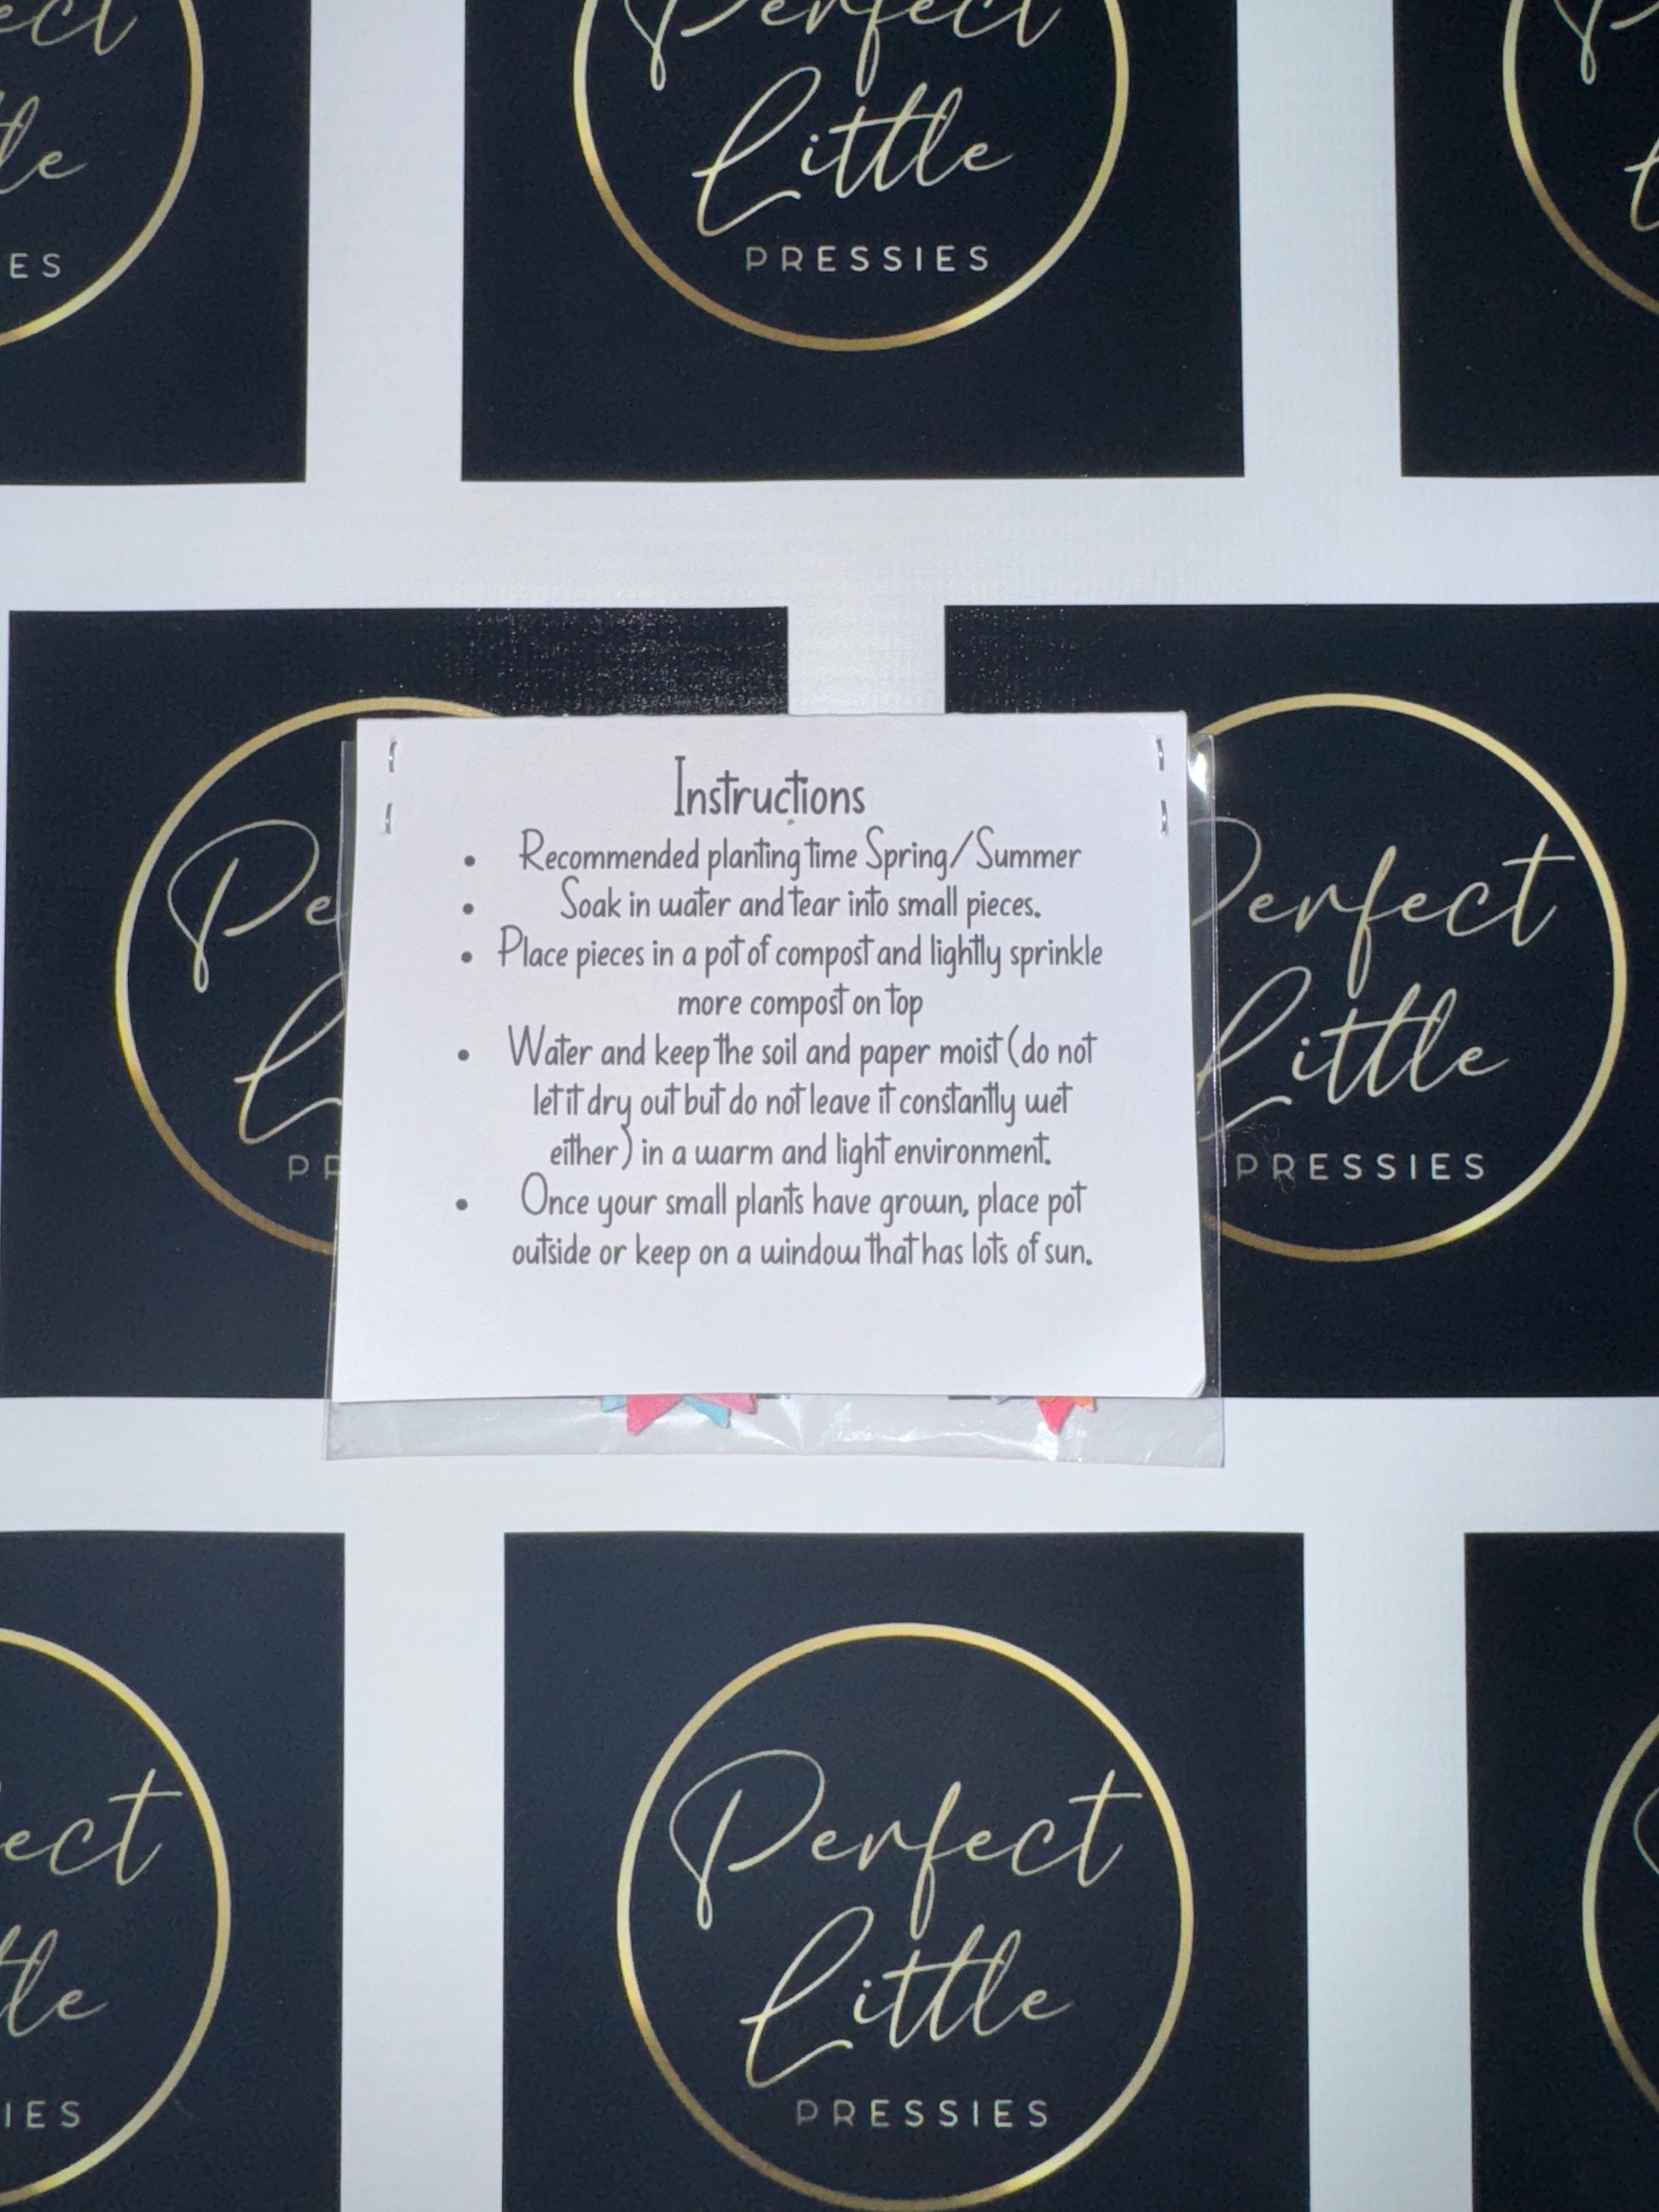 ect
le
ES
Perfect
Little
PRESSIES
Instructions
• Recommended planting time Spring/Summer
• Soak in water and tear into small pieces.
• Place pieces in a pot of compost and lightly sprinkle
more compost on top
• Water and keep the soil and paper moist (do not
let it dry out but do not leave it constantly wet
either) in a warm and light environment.
• Once your small plants have grown, place pot
outside or keep on a window that has lots of sun.
Pe
L
PR
Perfect
Little
PRESSIES
ect
tle
IES
Perfect
Little
PRESSIES